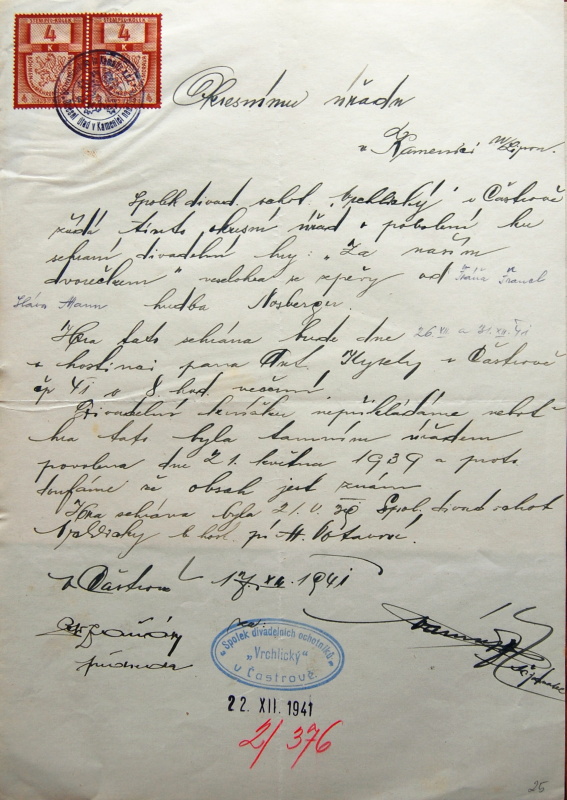 STEMPEL-KOLEK STEMPEL-KOLEK
4 4
K K
Okresnímu úřadu
v Kamenici n/Lipou.
Spolek divad. ochot. „Vrchlický" v Častrově
žádá tímto okresní úřad o povolení ku
sehraní divadelní hry: „Za naším
dvorečkem" veselohra se zpěvy od
hudba Nosberger.
Hra tato sehrána bude dne 26. XII. a 31. XII. 41
v hostinci pana Ant. Kysely v Častrově
čp 41 o 8 hod. večerní.
Divadelní knížku nepřikládáme neboť
hra tato byla tamním úřadem
povolena dne 21. května 1939 a proto
doufáme že obsah jest znám
Hra sehrána byla 21. V. 39 Spol. divad ochot
Vrchlický v host. pí. M. Votavové.
v Častrově 17. XII. 1941
za:
předseda
Spolek divadelních ochotníků
„Vrchlický"
v Častrově.
22. XII. 1941
2/376
25